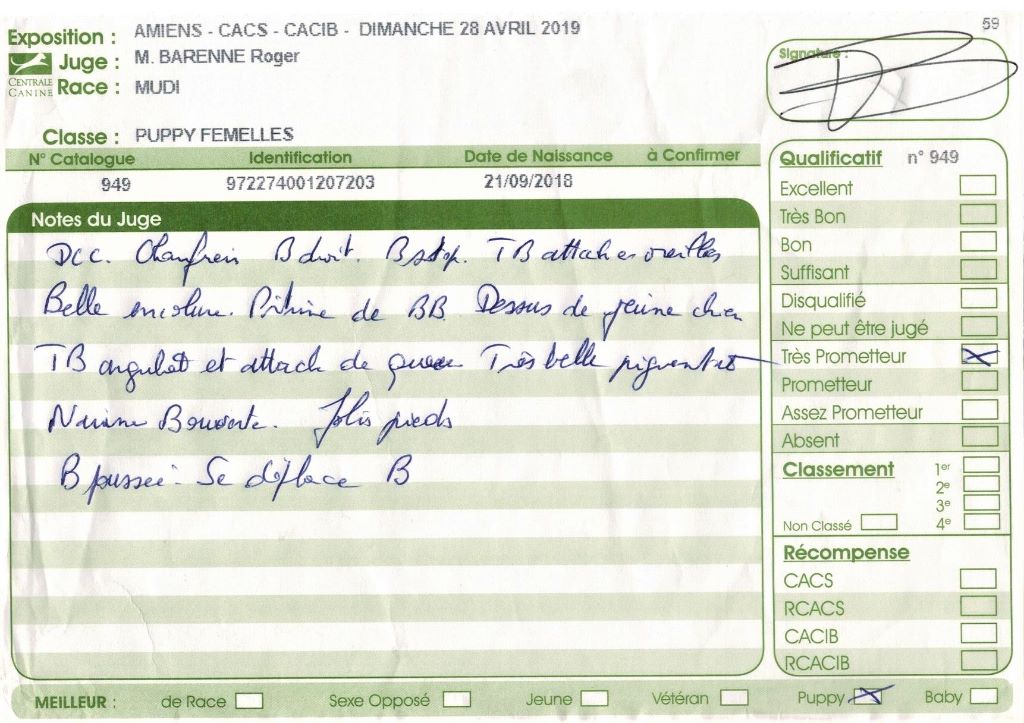 59
Exposition : AMIENS - CACS - CACIB - DIMANCHE 28 AVRIL 2019
Juge : M. BARENNE Roger
CENTRALE CANINE
Race : MUDI
Signature :
Classe : PUPPY FEMELLES
N° Catalogue Identification Date de Naissance à Confirmer
949 972274001207203 21/09/2018
Notes du Juge
DCC. Chanfrein B droit. B stop. TB attaches oreilles
Belle encolure. Poitrine de BB. Dessus de jeune chien
TB angulat et attach de queue Très belle
Narine B ouverte. Jolis pieds
B Se déplace B
Qualificatif n° 949
Excellent
Très Bon
Bon
Suffisant
Disqualifié
Ne peut être jugé
Très Prometteur X
Prometteur
Assez Prometteur
Absent
Classement 1er
2e
3e
Non Classé 4e
Récompense
CACS
RCACS
CACIB
RCACIB
MEILLEUR : de Race Sexe Opposé Jeune Vétéran Puppy X Baby